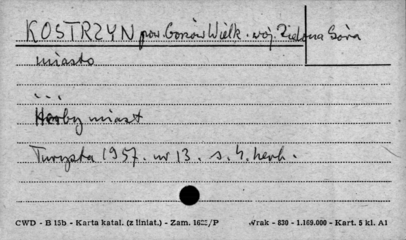 KOSTRZYN pow. Gorzów Wielk. woj. Zielona Góra
miasto
...
Herby miast
Turysta 1957. nr 13. s. 4. herb.
CWD - B 15b - Karta katal. (z liniat.) - Zam. 1622/P Wrak - 830 - 1.169.000 - Kart. 5 kl. A1